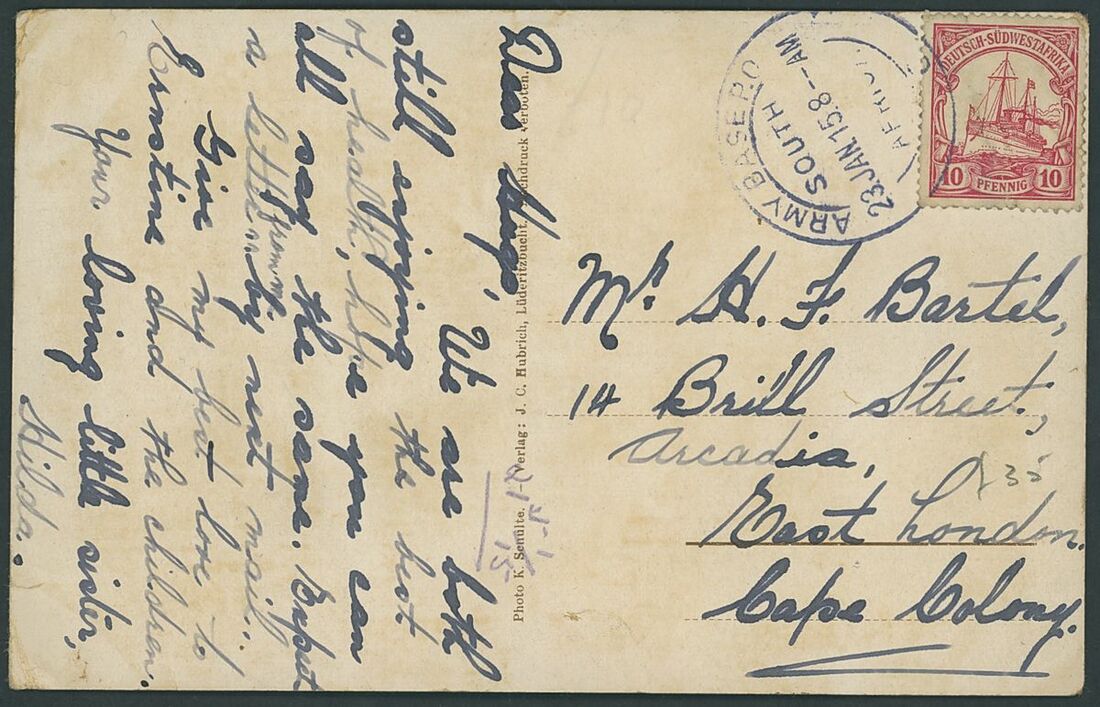 Dear Hugo,
We are both
still enjoying the best
of health, hope you can
all say the same. Expect
a letter from me by next mail.
Give my best love to
Ernstine and the children.
Your loving little sister,
Hilda.
Photo K. Schülte. — Verlag: J. C. Hubrich, Lüderitzbucht. Nachdruck verboten.
ARMY BASE P.O.
SOUTH
23 JAN 15.8-AM
AFRICA
DEUTSCH-SÜDWESTAFRIKA
10 PFENNIG 10
Mr. H. F. Bartel,
14 Brill Street,
Arcadia,
East London.
Cape Colony.